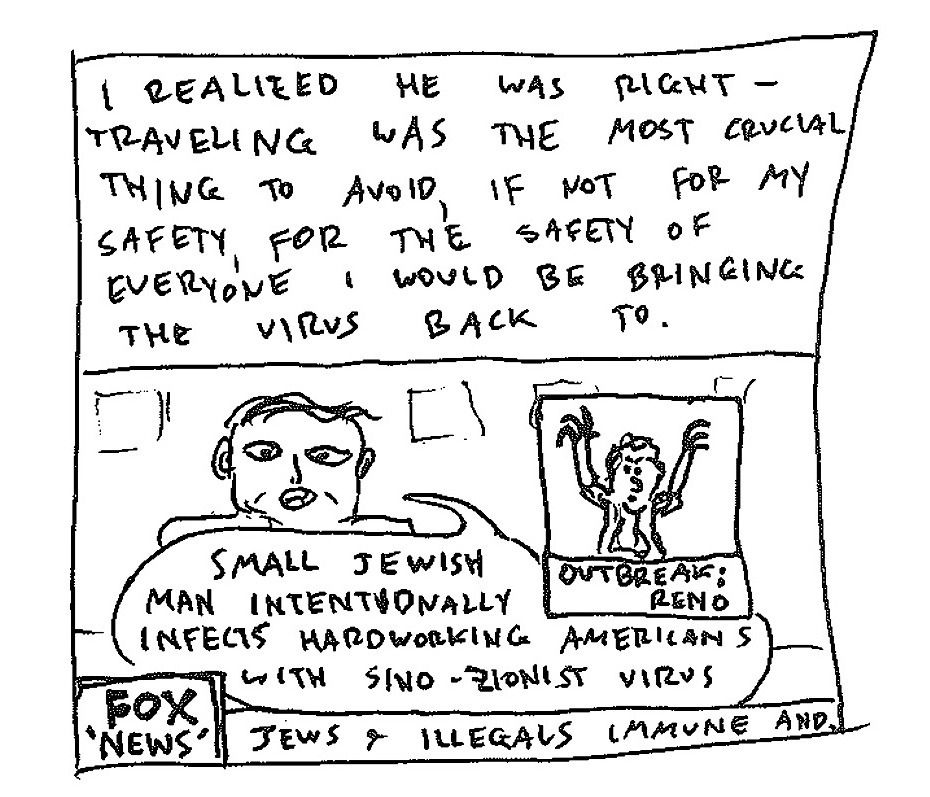 I REALIZED HE WAS RIGHT –
TRAVELING WAS THE MOST CRUCIAL
THING TO AVOID, IF NOT FOR MY
SAFETY, FOR THE SAFETY OF
EVERYONE I WOULD BE BRINGING
THE VIRUS BACK TO.
SMALL JEWISH
MAN INTENTIONALLY
INFECTS HARDWORKING AMERICANS
WITH SINO-ZIONIST VIRUS
OUTBREAK:
RENO
FOX
"NEWS"
JEWS & ILLEGALS IMMUNE AND